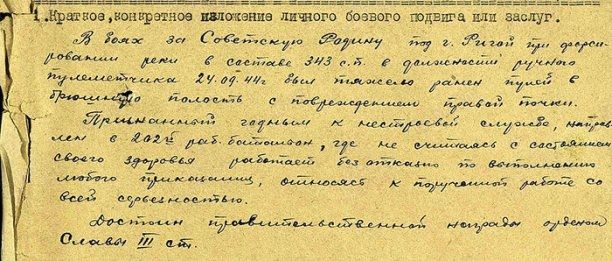 1.Краткое,конкретное изложение личного боевого подвига или заслуг.
В боях за Советскую Родину под г. Ригой при форси-
ровании реки в составе 343 с.п. в должности ручного
пулеметчика 24.09.44г был тяжело ранен пулей в
брюшную полость с повреждением правой почки.
Признанный годным к нестроевой службе, направ-
лен в 202й раб. батальон, где не считаясь с состоянием
своего здоровья работает безотказно по выполнению
любого приказания, относясь к порученной работе со
всей серьезностью.
Достоин правительственной награды орденом
Славы III ст.